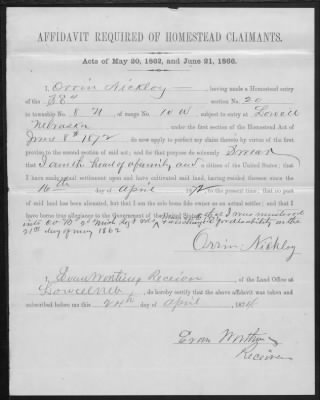 AFFIDAVIT REQUIRED OF HOMESTEAD CLAIMANTS.
Acts of May 20, 1862, and June 21, 1866.
I, Orvin Nickloy having made a Homestead entry
of the section No. 20
in township No. 8 N, of range No. 10 W, subject to entry at Lowell
Nebraska under the first section of the Homestead Act of
June 8th 1872 do now apply to perfect my claim thereto by virtue of the first
proviso to the second section of said act; and for that purpose do solemnly Swear
that I am the head of a family and a citizen of the United States; that I
have made actual settlement upon and have cultivated said land, having resided thereon since the
16th day of April to the present time; that no part
of said land has been alienated, but that I am the sole bona fide owner as an actual settler; and that I
have borne true allegiance to the Government of the United States; that I was mustered
into disability on the
21st day of May 1862
Orvin Nickloy
I, Evan Worthing Receiver of the Land Office at
Lowell Neb, do hereby certify that the above affidavit was taken and
subscribed before me this 24th day of April, 1874
Evan Worthing
Receiver